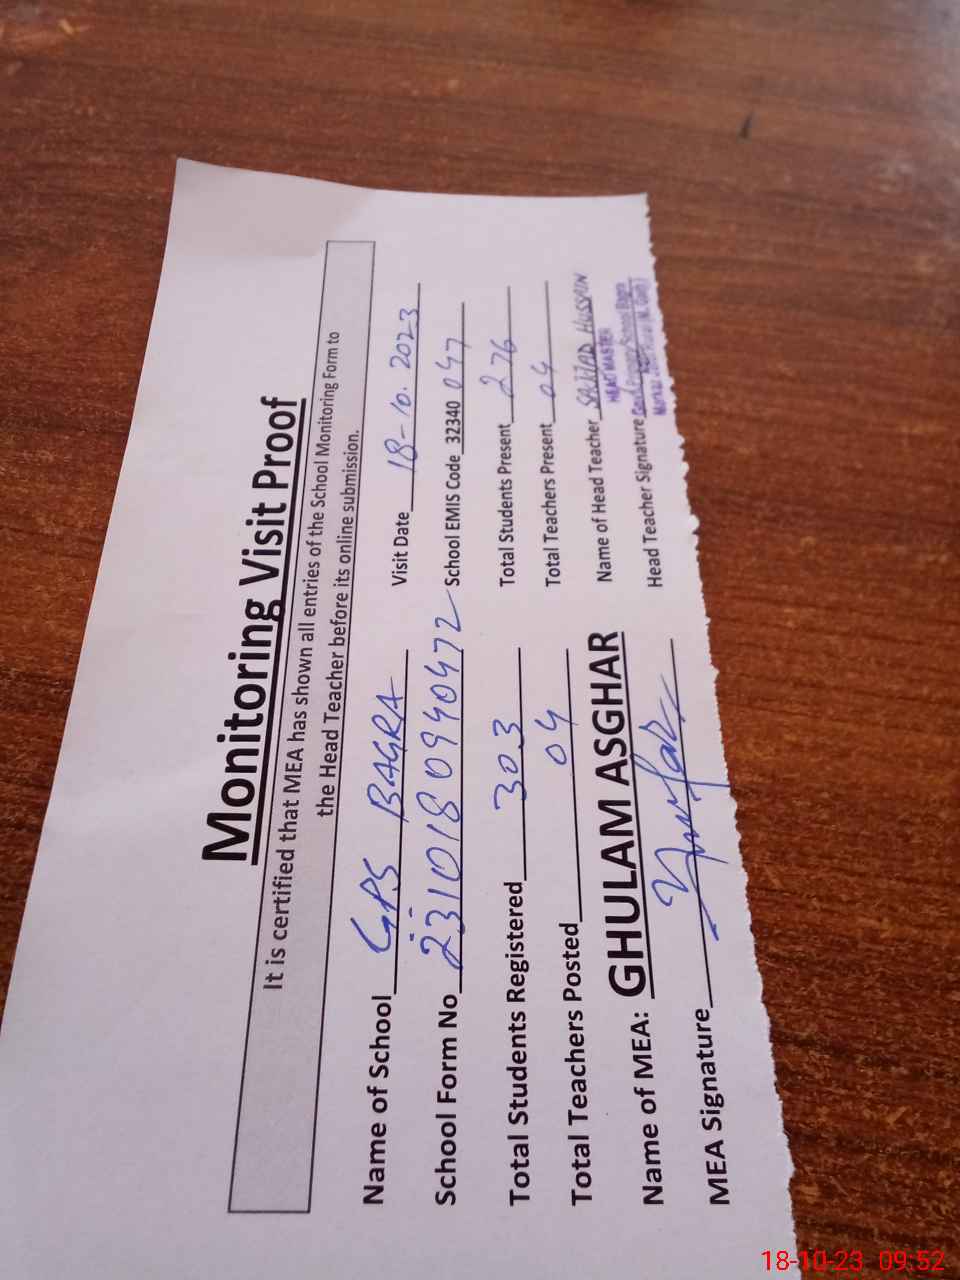 Monitoring Visit Proof
It is certified that MEA has shown all entries of the School Monitoring Form to
the Head Teacher before its online submission.
Name of School GPS BAGRA Visit Date 18-10.2023
School Form No 2310180940472 School EMIS Code 32340 047
Total Students Registered 303 Total Students Present 276
Total Teachers Posted 04 Total Teachers Present 04
Name of MEA: GHULAM ASGHAR Name of Head Teacher SAJJAD HUSSAIN
HEAD MASTER
MEA Signature Head Teacher Signature Govt. Primary School Bagra
Markaz
18-10-23 09:52